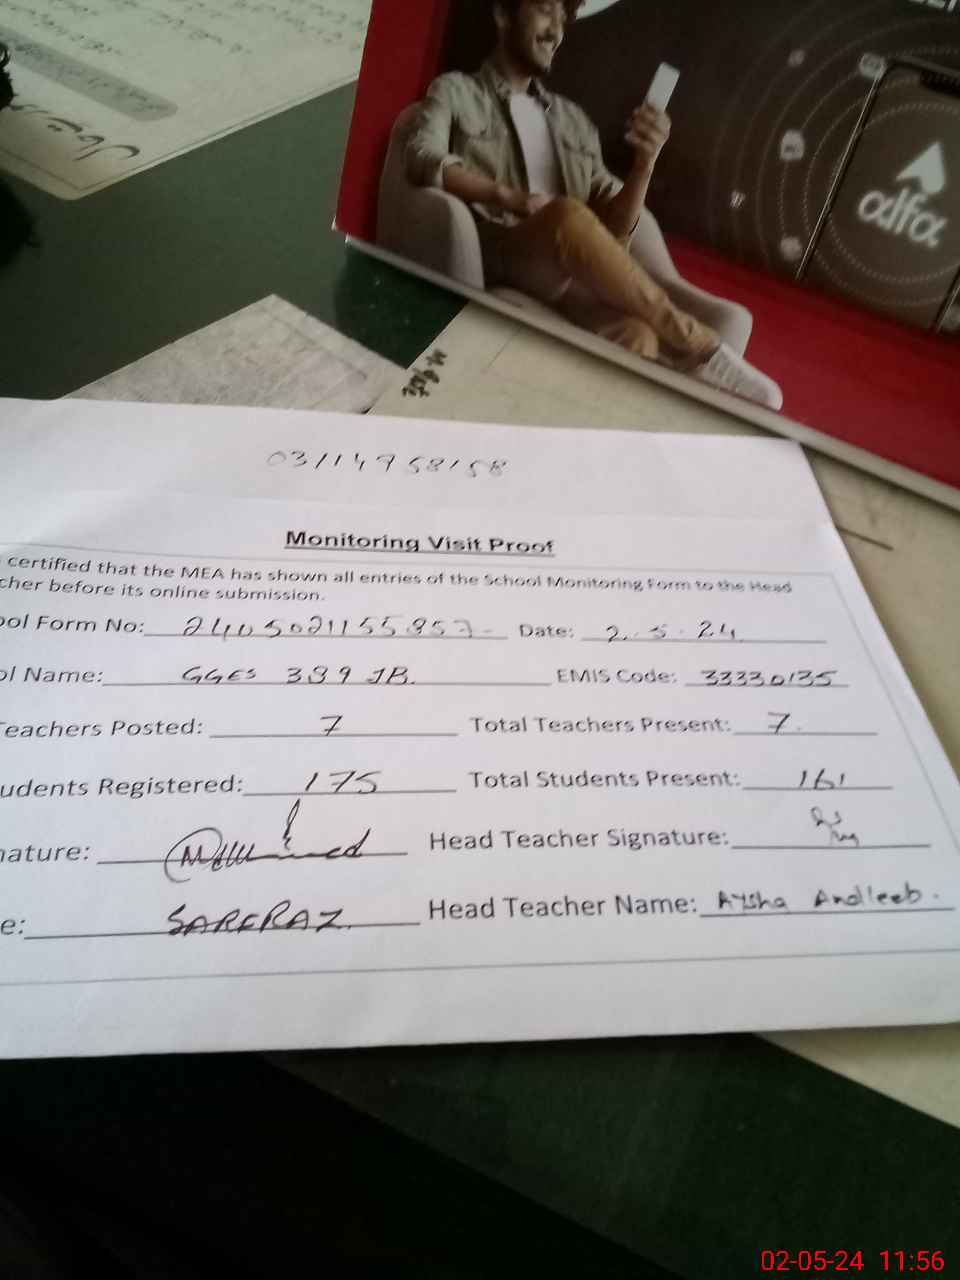 alfa
03114758158
Monitoring Visit Proof
certified that the MEA has shown all entries of the School Monitoring Form to the Head
cher before its online submission.
ool Form No: 2405021155857 Date: 2.5.24
ol Name: GGES 339 JB. EMIS Code: 33330135
Teachers Posted: 7 Total Teachers Present: 7.
udents Registered: 175 Total Students Present: 161
nature: Head Teacher Signature:
e: SARFRAZ. Head Teacher Name: Aysha Andleeb.
02-05-24 11:56